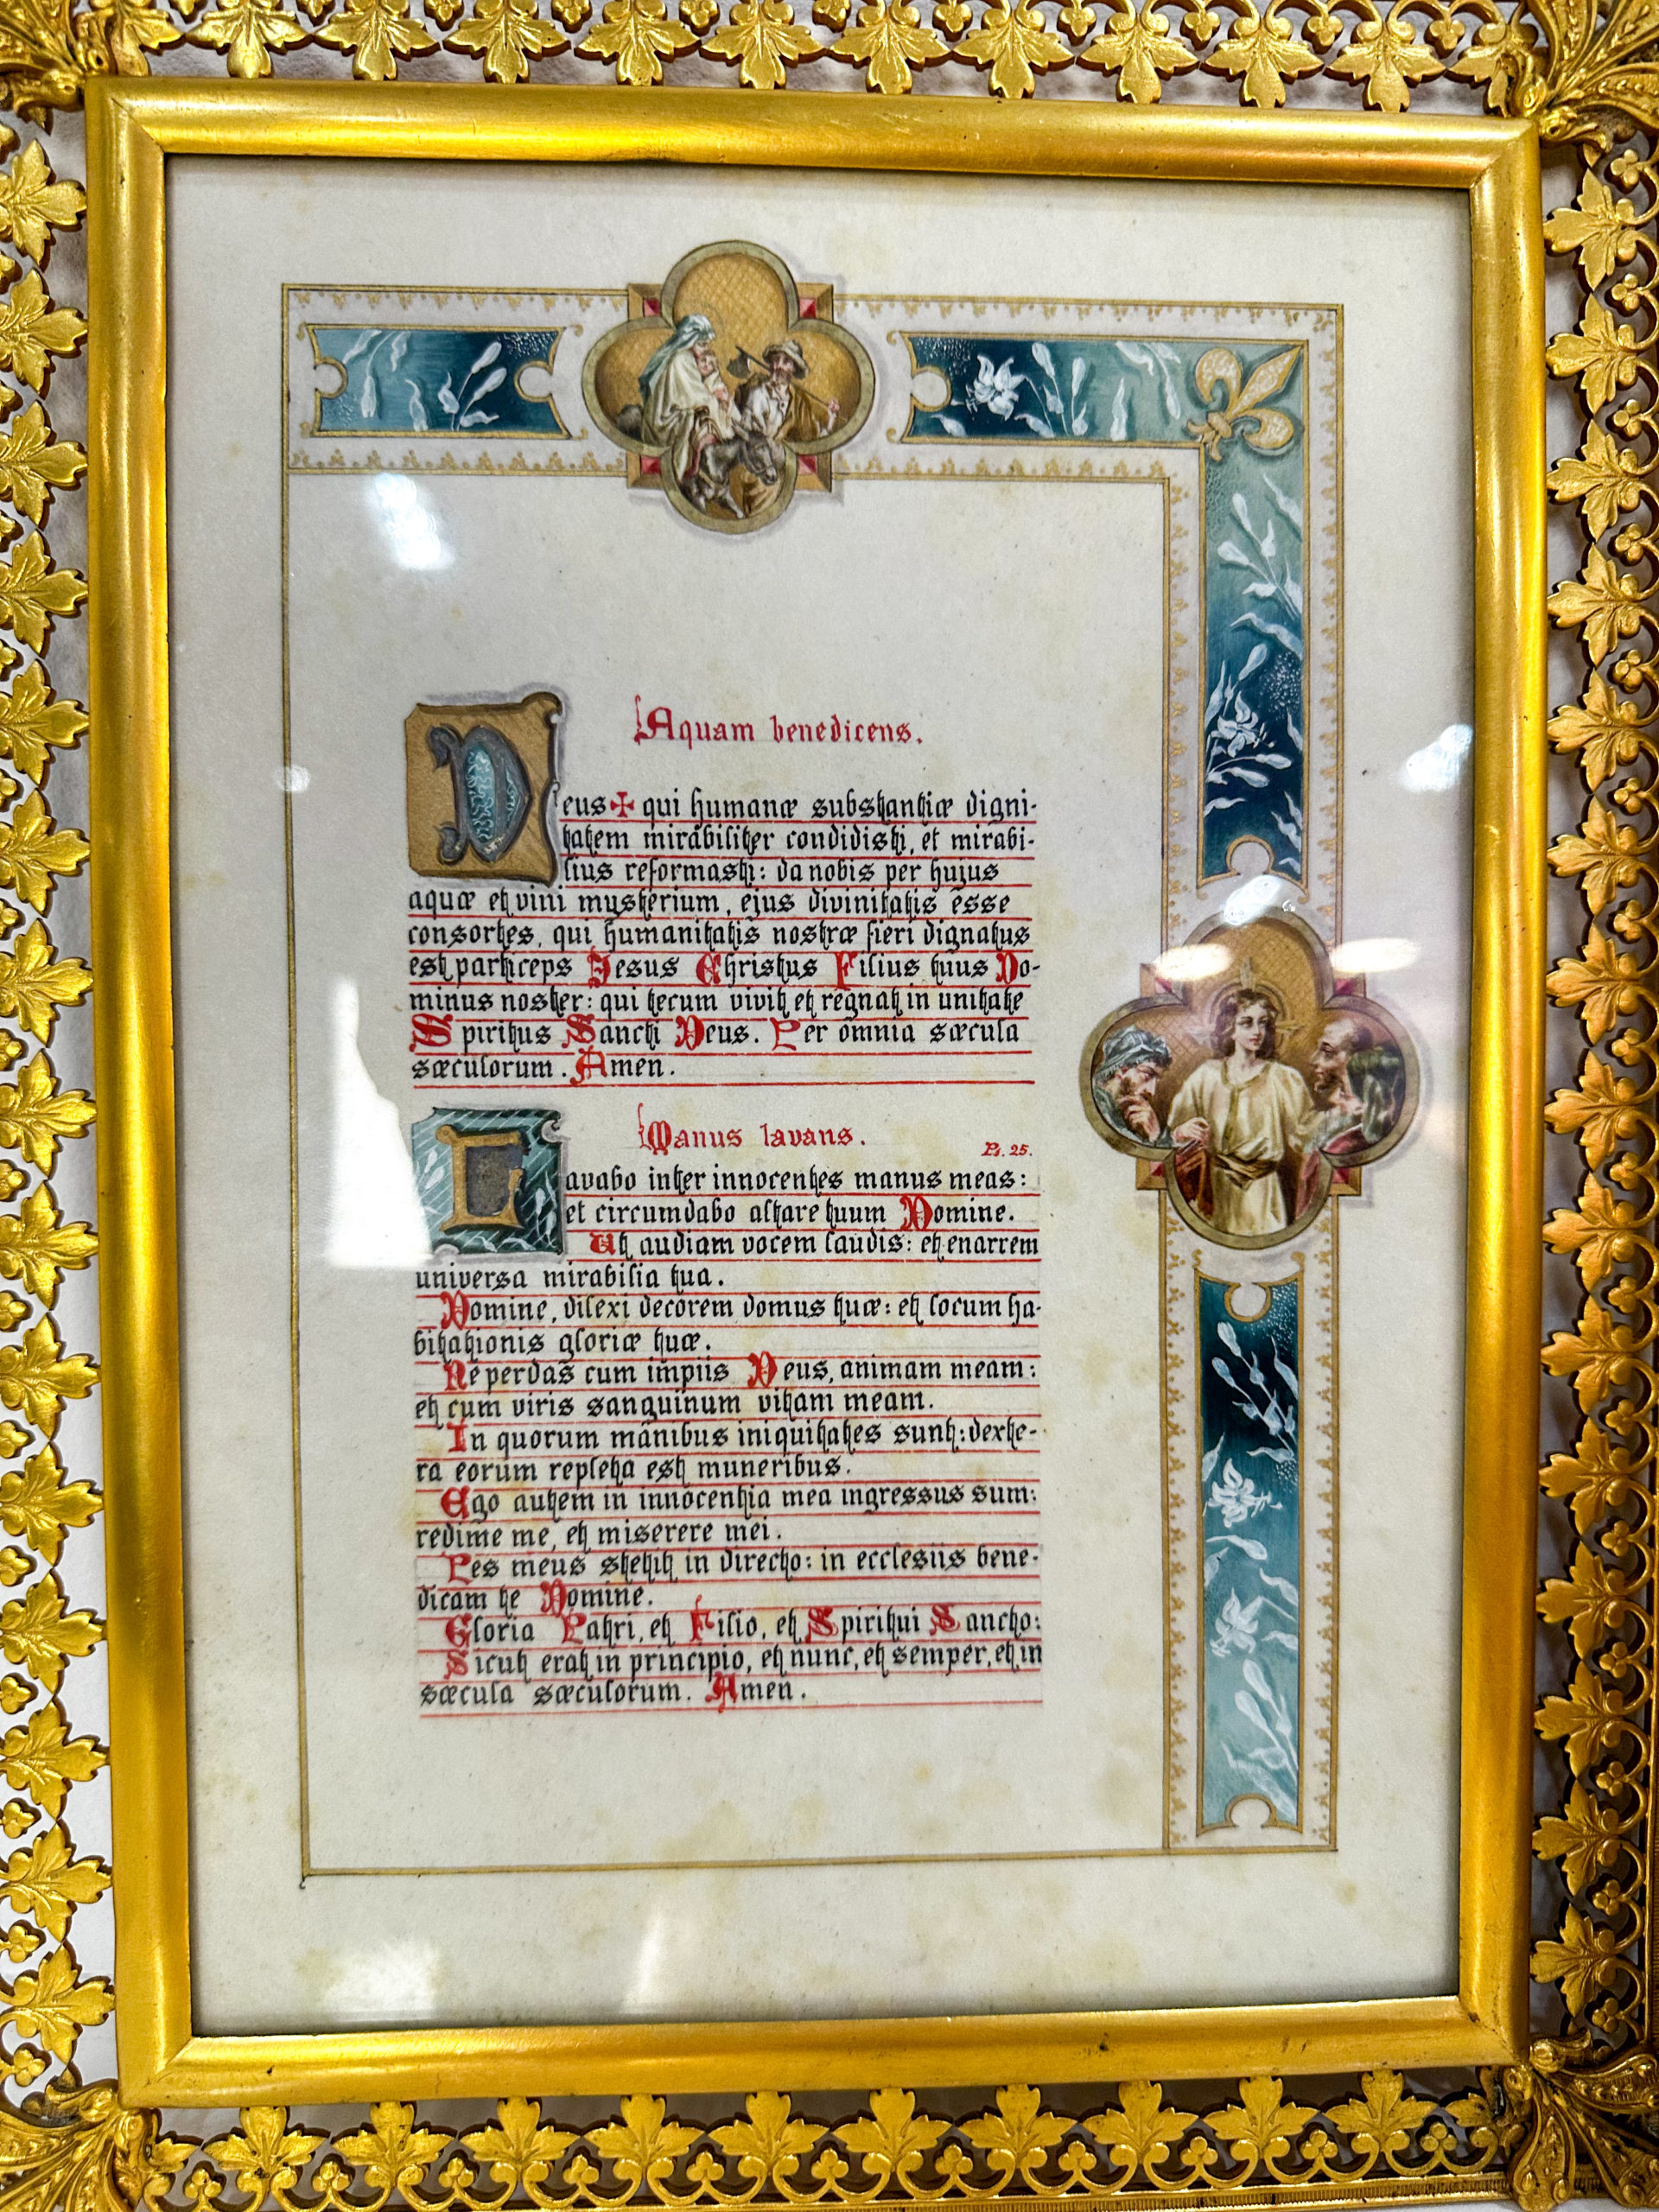 Aquam benedicens.
Deus ✠ qui humanæ substantiæ digni-
tatem mirabiliter condidisti, et mirabi-
lius reformasti: da nobis per hujus
aquæ et vini mysterium, ejus divinitatis esse
consortes, qui humanitatis nostræ fieri dignatus
est particeps Jesus Christus Filius tuus Do-
minus noster: qui tecum vivit et regnat in unitate
Spiritus Sancti Deus. Per omnia sæcula
sæculorum. Amen.
Manus lavans.
Ps. 25.
Lavabo inter innocentes manus meas:
et circumdabo altare tuum Domine.
Ut audiam vocem laudis: et enarrem
universa mirabilia tua.
Domine, dilexi decorem domus tuæ: et locum ha-
bitationis gloriæ tuæ.
Ne perdas cum impiis Deus, animam meam:
et cum viris sanguinum vitam meam.
In quorum manibus iniquitates sunt: dexte-
ra eorum repleta est muneribus.
Ego autem in innocentia mea ingressus sum:
redime me, et miserere mei.
Pes meus stetit in directo: in ecclesiis bene-
dicam te Domine.
Gloria Patri, et Filio, et Spiritui Sancto:
Sicut erat in principio, et nunc, et semper, et in
sæcula sæculorum. Amen.